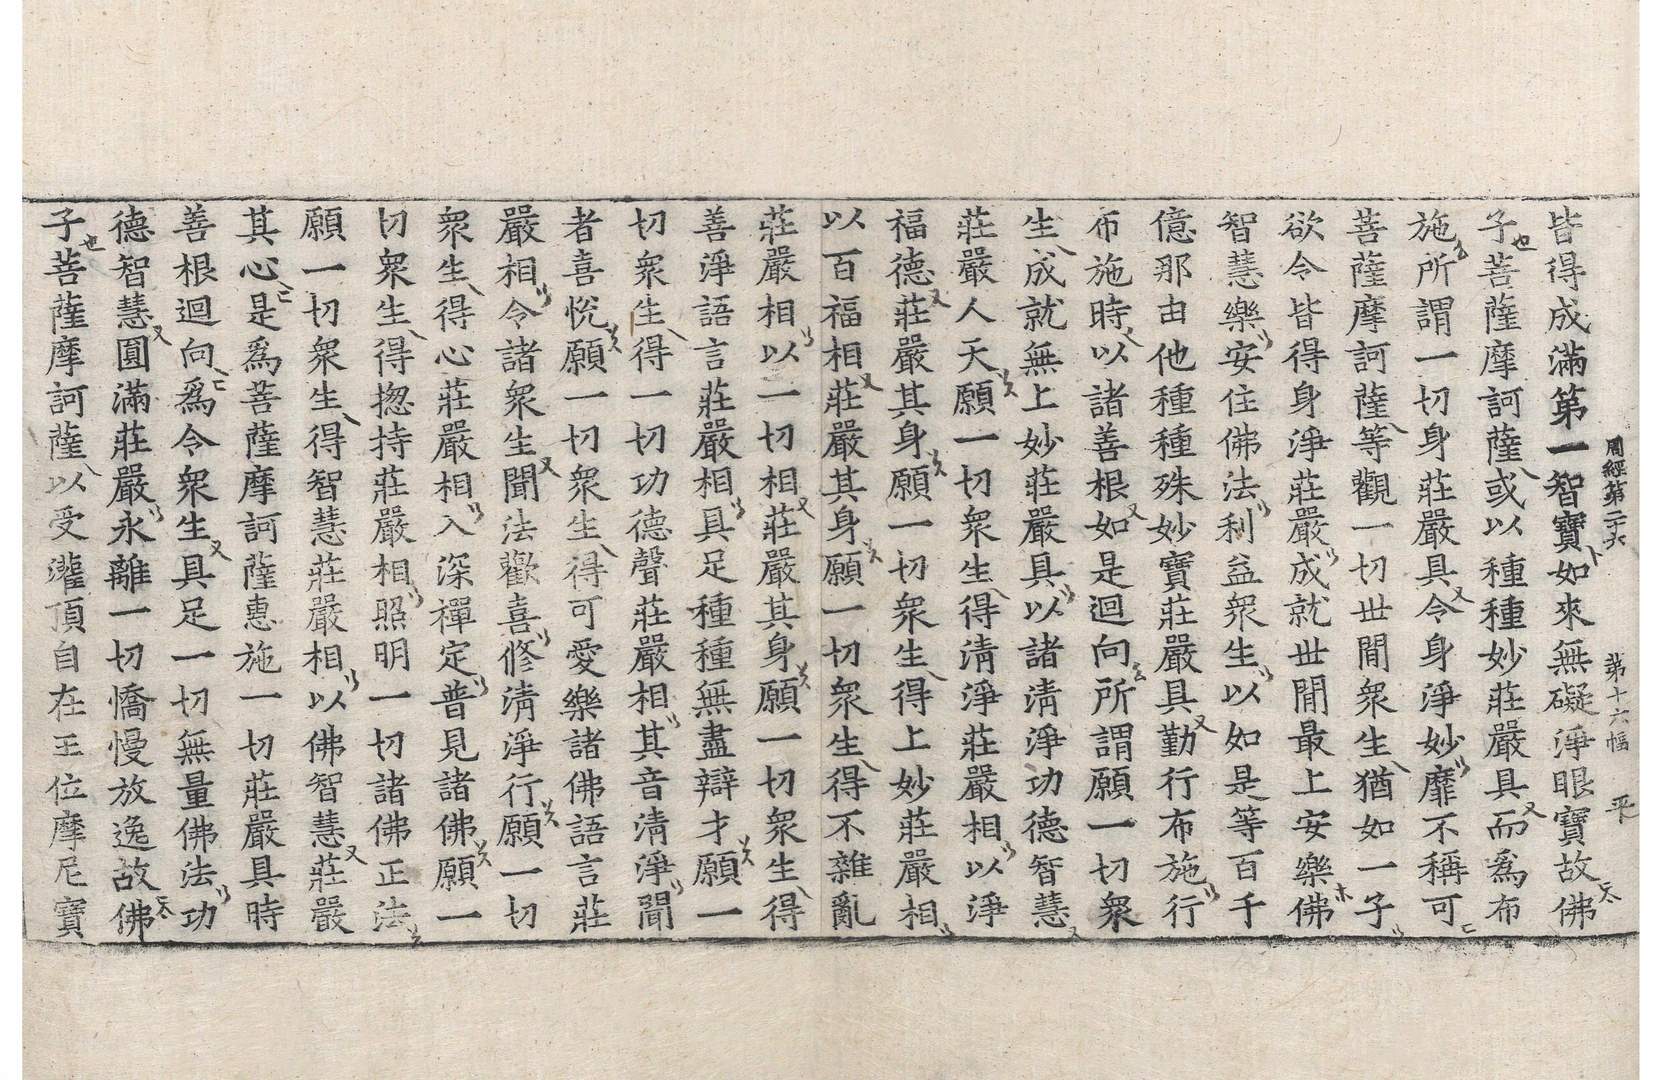 周經第二十六 第十六幅 平
皆得成滿第一智寶如來無礙淨眼寶故佛
子菩薩摩訶薩或以種種妙莊嚴具而爲布
施所謂一切身莊嚴具令身淨妙靡不稱可
菩薩摩訶薩等觀一切世間衆生猶如一子
欲令皆得身淨莊嚴成就世間最上安樂佛
智慧樂安住佛法利益衆生以如是等百千
億那由他種種殊妙寶莊嚴具勤行布施行
布施時以諸善根如是迴向所謂願一切衆
生成就無上妙莊嚴具以諸清淨功德智慧
莊嚴人天願一切衆生得清淨莊嚴相以淨
福德莊嚴其身願一切衆生得上妙莊嚴相
以百福相莊嚴其身願一切衆生得不雜亂
莊嚴相以一切相莊嚴其身願一切衆生得
善淨語言莊嚴相具足種種無盡辯才願一
切衆生得一切功德聲莊嚴相其音清淨聞
者喜悅願一切衆生得可愛樂諸佛語言莊
嚴相令諸衆生聞法歡喜修清淨行願一切
衆生得心莊嚴相入深禪定普見諸佛願一
切衆生得揔持莊嚴相照明一切諸佛正法
願一切衆生得智慧莊嚴相以佛智慧莊嚴
其心是爲菩薩摩訶薩惠施一切莊嚴具時
善根迴向爲令衆生具足一切無量佛法功
德智慧圓滿莊嚴永離一切憍慢放逸故佛
子菩薩摩訶薩以受灌頂自在王位摩尼寶